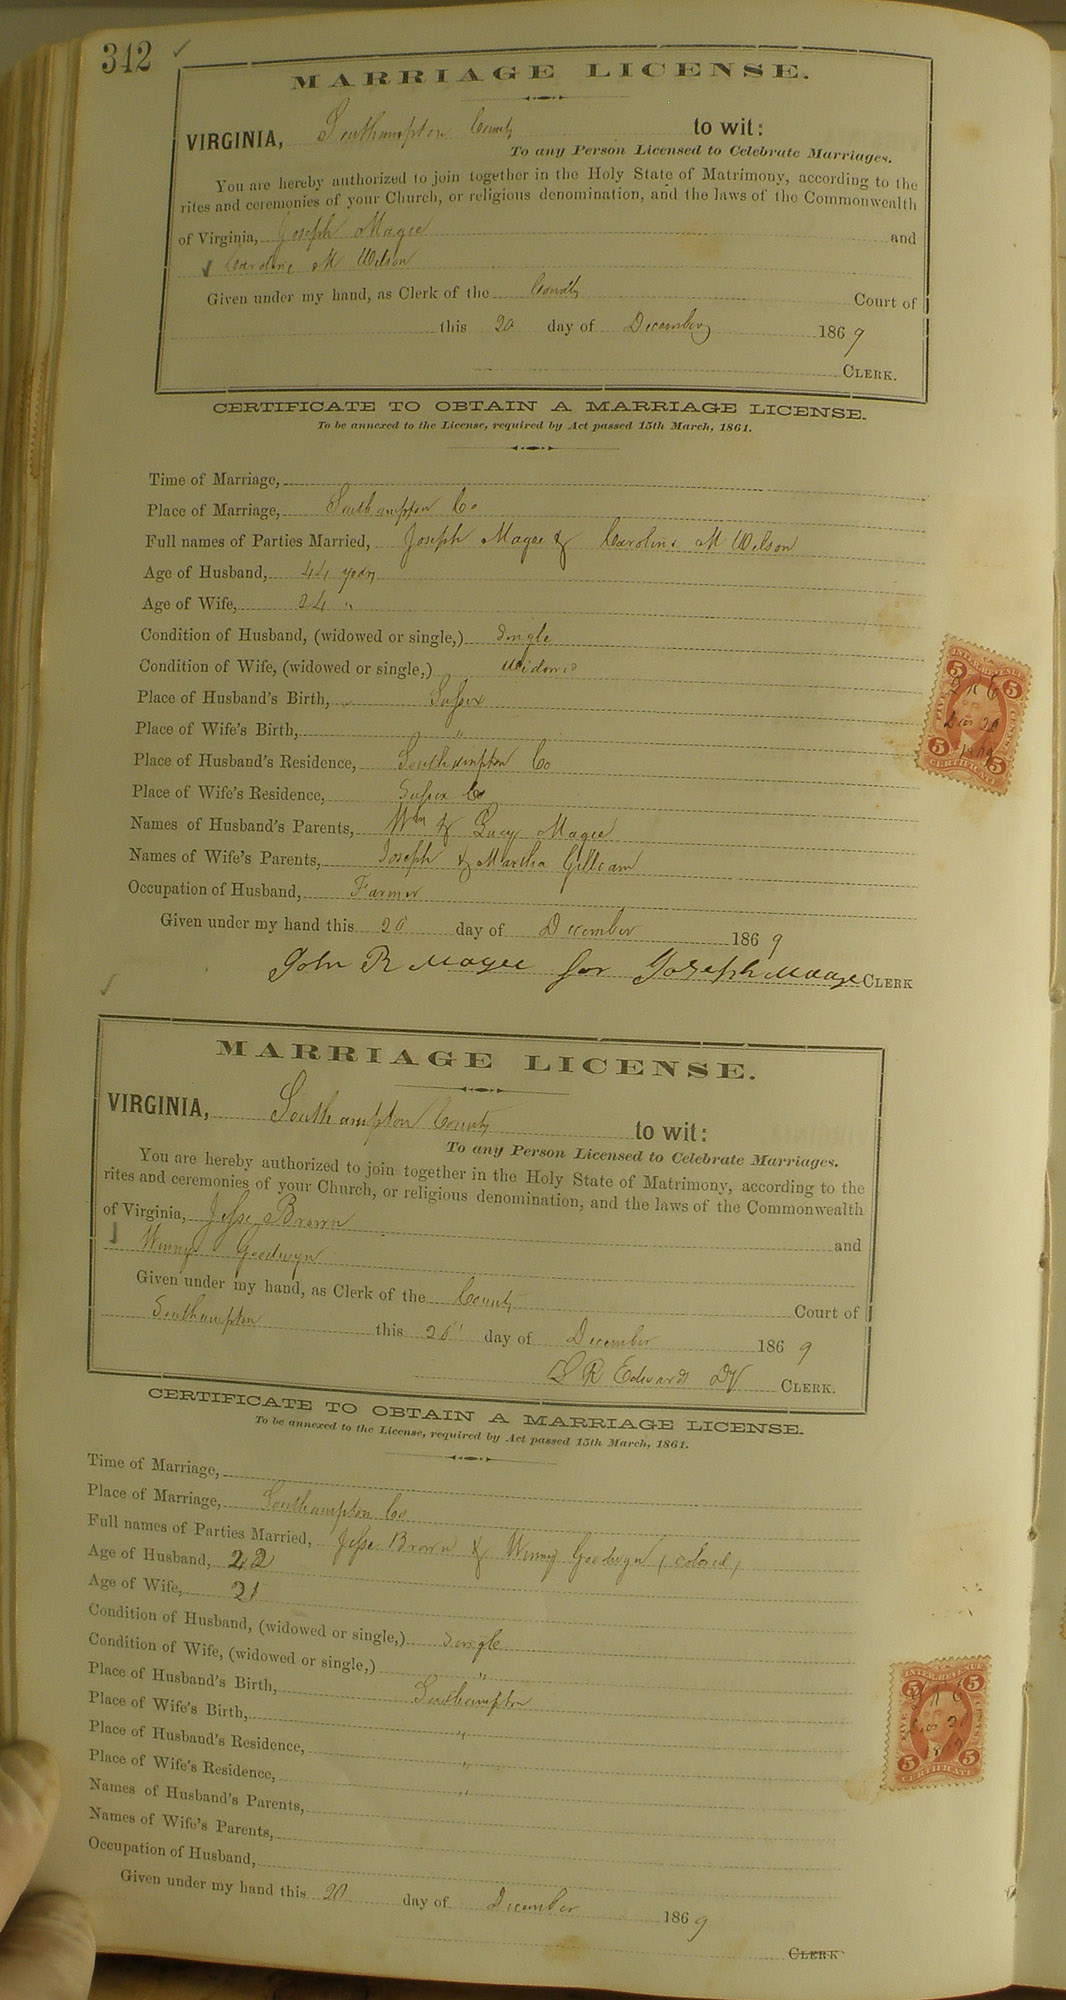 312
MARRIAGE LICENSE.
VIRGINIA, Southampton County to wit:
To any Person Licensed to Celebrate Marriages.
You are hereby authorized to join together in the Holy State of Matrimony, according to the
rites and ceremonies of your Church, or religious denomination, and the laws of the Commonwealth
of Virginia, Joseph Magee and
Caroline M Wilson
Given under my hand, as Clerk of the County Court of
this 20 day of December 1869
CLERK.
CERTIFICATE TO OBTAIN A MARRIAGE LICENSE.
To be annexed to the License, required by Act passed 15th March, 1861.
Time of Marriage,
Place of Marriage, Southampton Co
Full names of Parties Married, Joseph Magee & Caroline M Wilson
Age of Husband, 44 years
Age of Wife, 24 "
Condition of Husband, (widowed or single,) Single
Condition of Wife, (widowed or single,) Widow
Place of Husband's Birth, Sussex
Place of Wife's Birth, "
Place of Husband's Residence, Southampton Co
Place of Wife's Residence, Sussex Co
Names of Husband's Parents, Wm & Lucy Magee
Names of Wife's Parents, Joseph & Martha Gilliam
Occupation of Husband, Farmer
Given under my hand this 20 day of December 1869
John R Magee for Joseph Magee CLERK
INTER. REVENUE
5 5
FIVE CENTS
Dec 20
1869
5 5
CERTIFICATE
MARRIAGE LICENSE.
VIRGINIA, Southampton County to wit:
To any Person Licensed to Celebrate Marriages.
You are hereby authorized to join together in the Holy State of Matrimony, according to the
rites and ceremonies of your Church, or religious denomination, and the laws of the Commonwealth
of Virginia, Jesse Brown and
Winny Goodwyn
Given under my hand, as Clerk of the County Court of
Southampton this 20" day of December 1869
L R Edwards CLERK.
CERTIFICATE TO OBTAIN A MARRIAGE LICENSE.
To be annexed to the License, required by Act passed 15th March, 1861.
Time of Marriage,
Place of Marriage, Southampton Co
Full names of Parties Married, Jesse Brown & Winny Goodwyn (colored)
Age of Husband, 22
Age of Wife, 21
Condition of Husband, (widowed or single,) Single
Condition of Wife, (widowed or single,) "
Place of Husband's Birth, Southampton
Place of Wife's Birth, "
Place of Husband's Residence, "
Place of Wife's Residence, "
Names of Husband's Parents,
Names of Wife's Parents,
Occupation of Husband,
Given under my hand this 20 day of December 1869
CLERK
INTER. REVENUE
5 5
FIVE CENTS
Dec 20
1869
5 5
CERTIFICATE